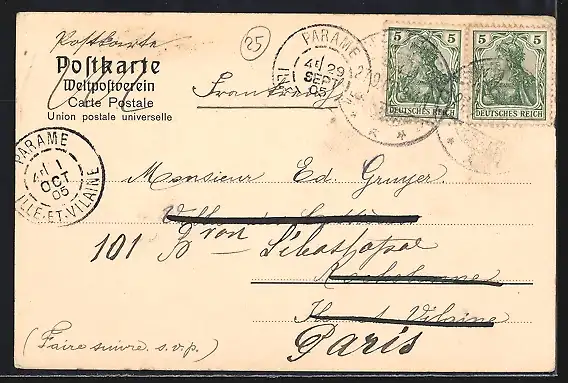 Postkarte
25
Postkarte
Weltpostverein
Carte Postale
Union postale universelle
Frankreich
PARAME
4E 29
SEPT
05
5 5
DEUTSCHES REICH DEUTSCHES REICH
PARAME
1
OCT
05
ILLE-ET-VILAINE
Monsieur Ed. Gruyer
101 Bron Sébastopol
Ille et Vilaine
Paris
(Faire suivre s.v.p.)